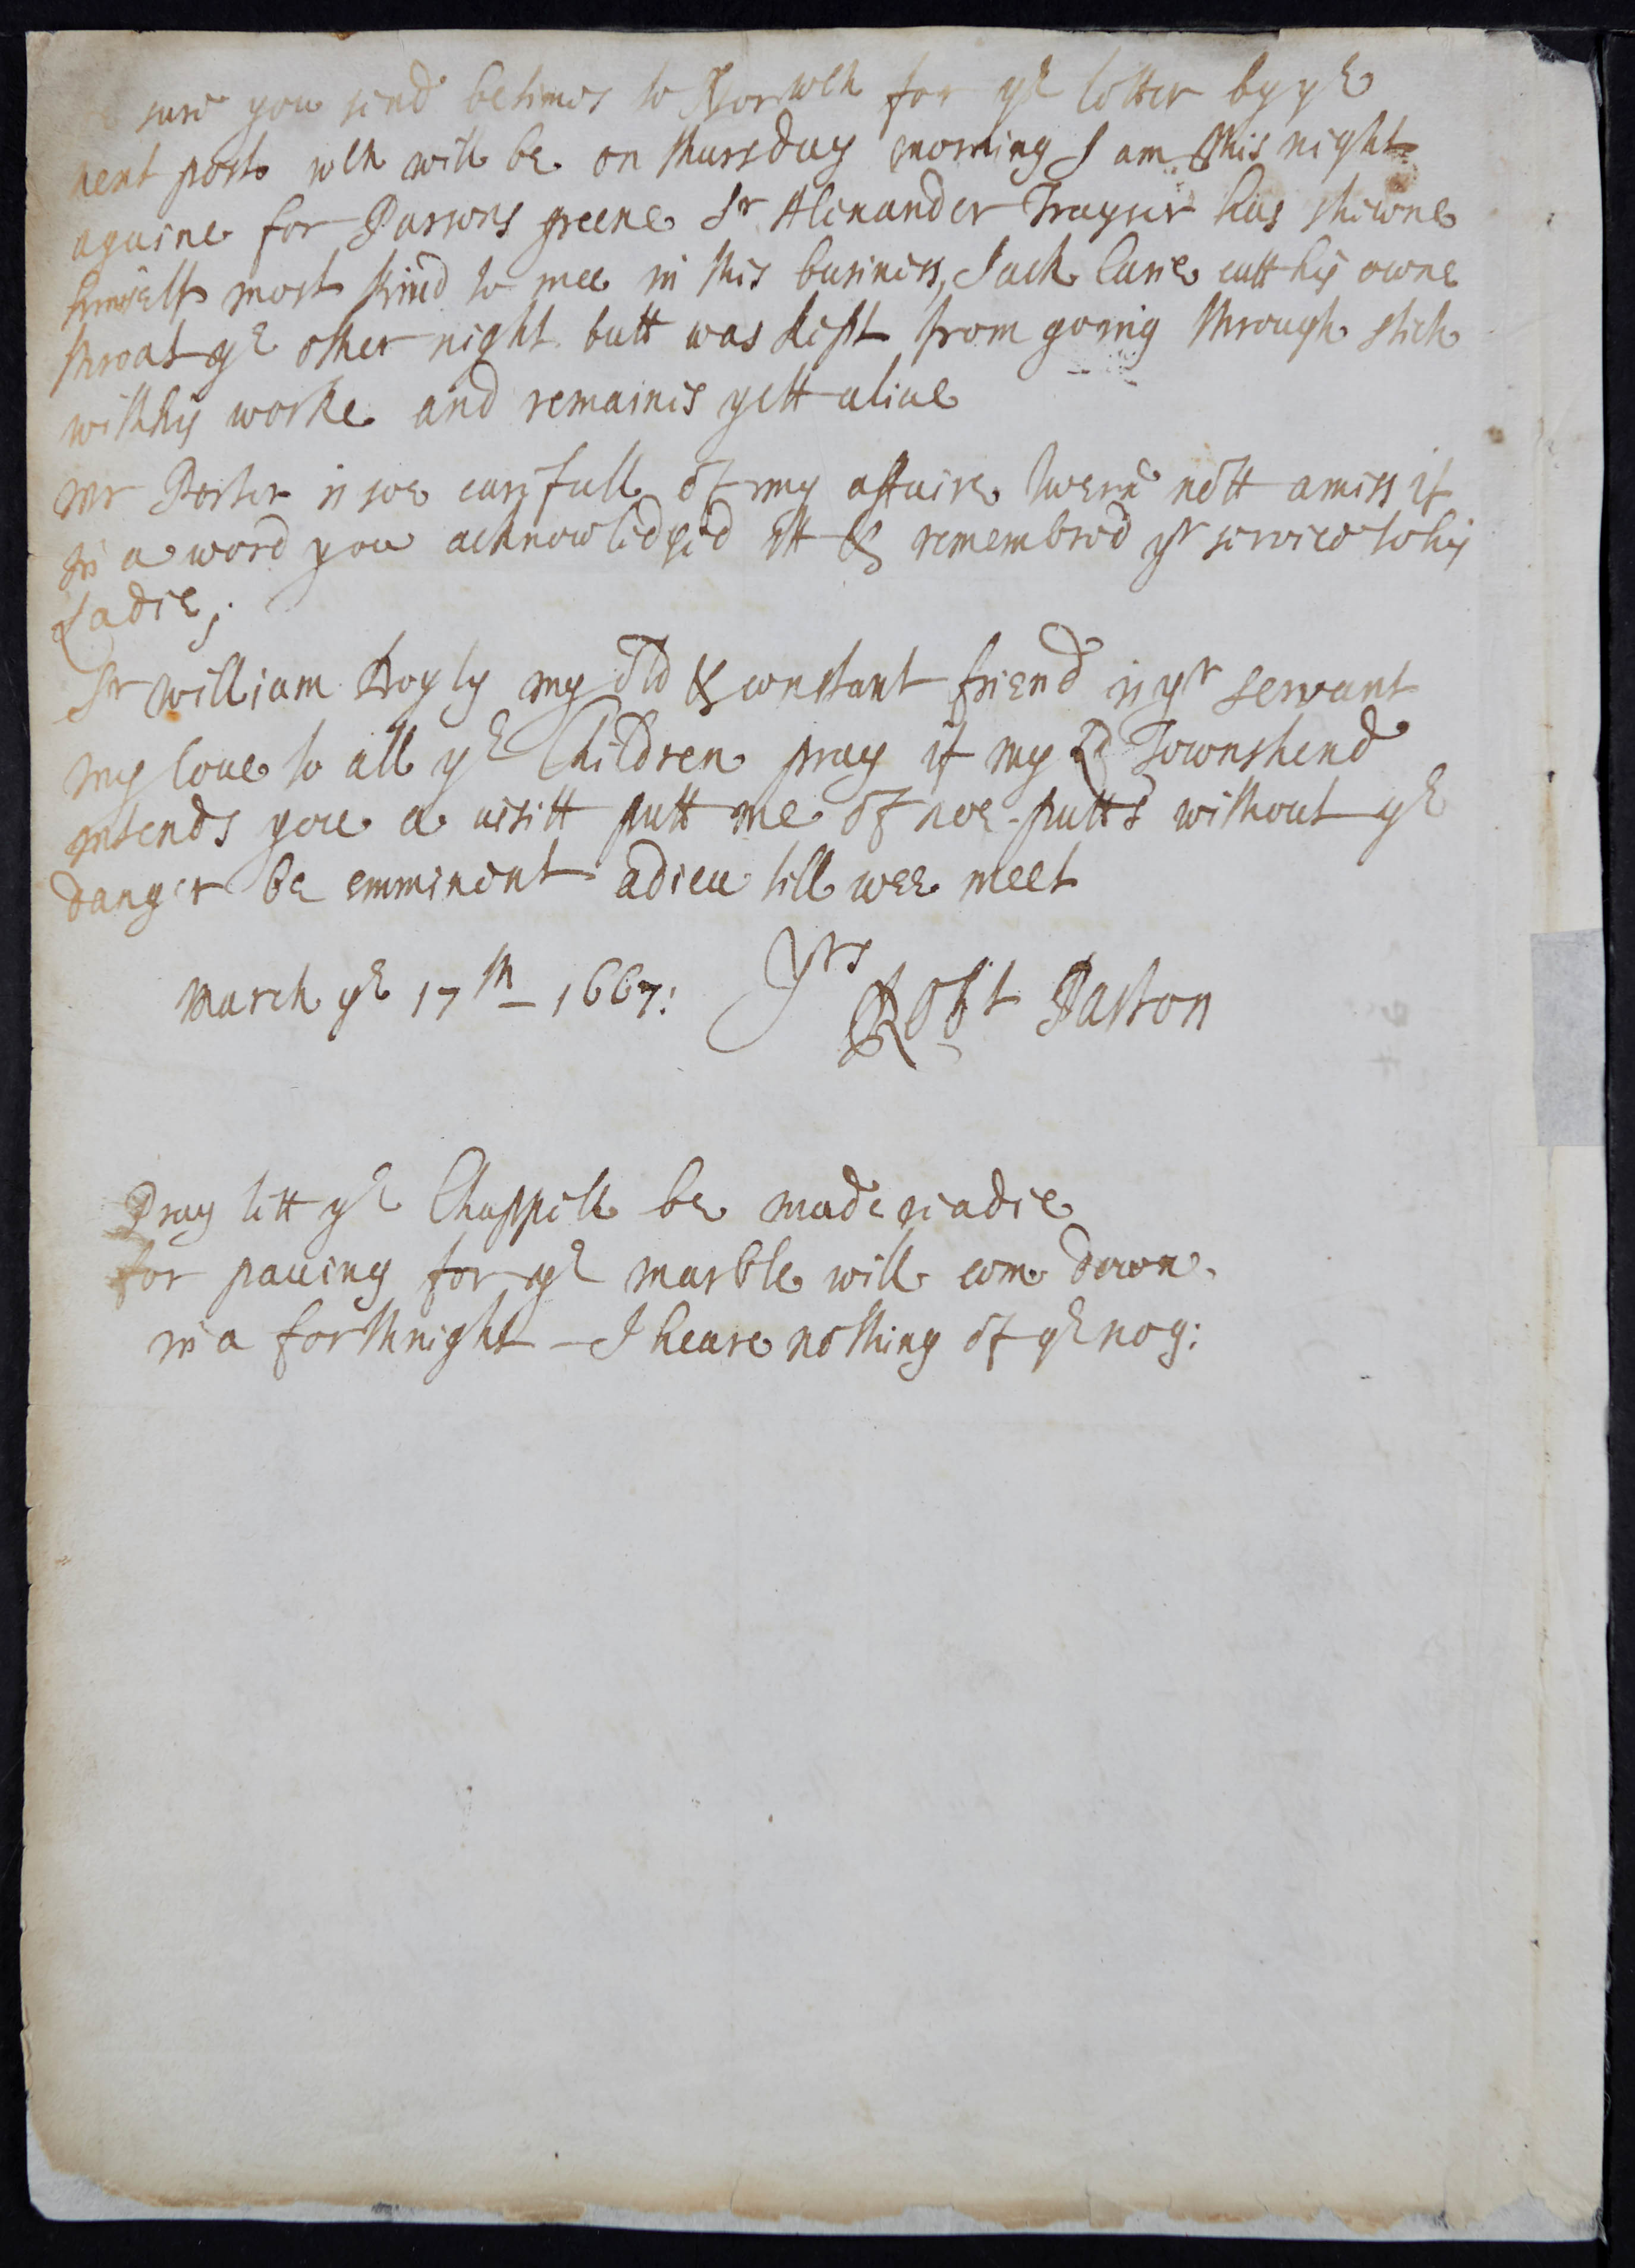 sure you send betimes to Norwch for ye letter by ye
next post wch will be on thursday morning I am this night
againe for Parsons greene Sr Alexander Frayser has shewne
himselfe most kind to mee in this business, Jack lane cutt his owne
throat ye other night butt was kept from going through stich
with his worke and remaines yett aliue
Mr Porter is soe carefull of my affaire twere nott amiss if
in a word you acknowledged itt & remembred yr service to his
Ladie;
Sr William Doyly my old & constant friend is yr servant
my loue to all ye Children pray if my Ld Townshend
intends you a uisitt putt me of noe putts without ye
danger be emminent adieu till wee meet
March ye 17th 1667: Yrs
Robt Paston
Pray lett ye Chappell be made readie
for pauing for ye marble will com down
in a forthnight - I heare nothing of ye nog: